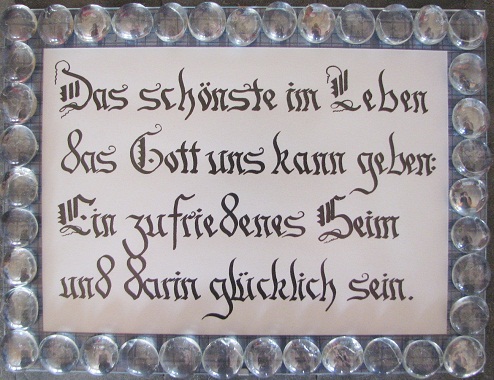 Das schönste im Leben
das Gott uns kann geben:
Ein zufriedenes Heim
und darin glücklich sein.